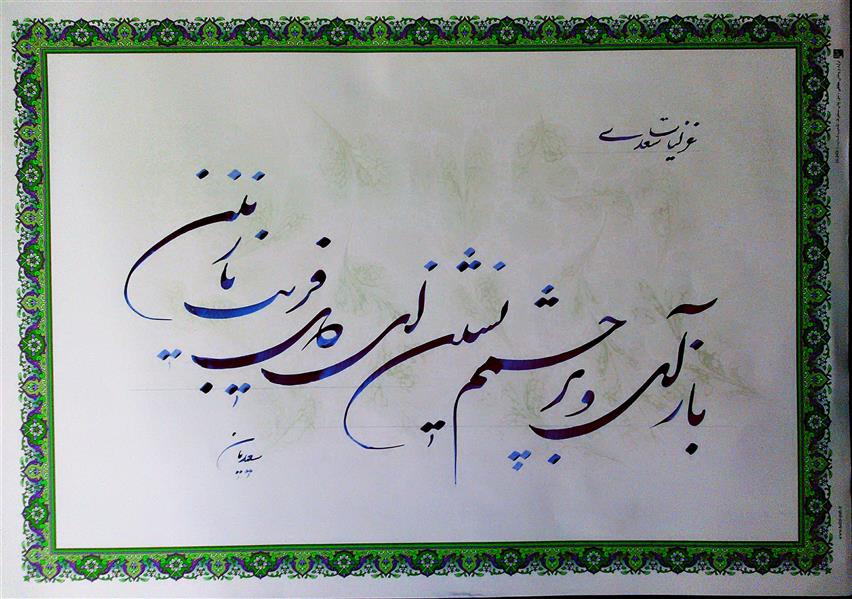 غزلیات سعدی
باز آی و بر چشمم نشین ای فریب نازنین
سعیدیان